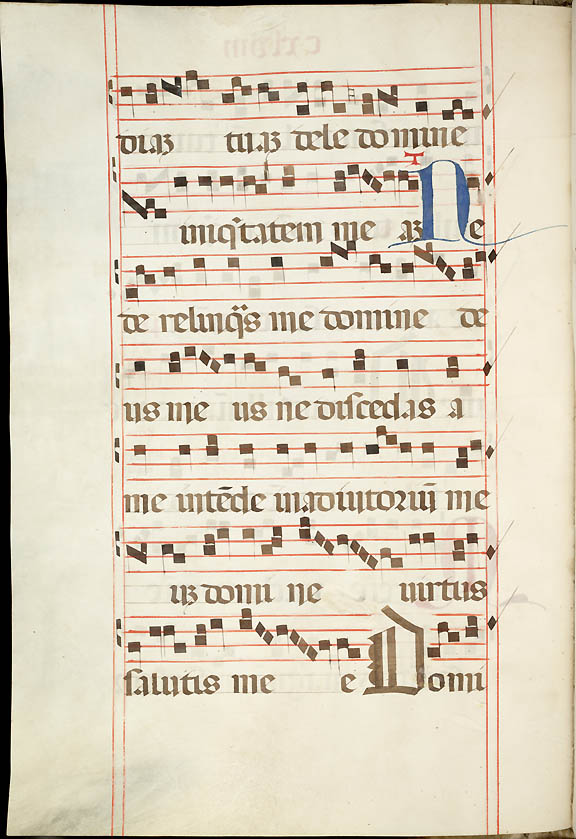 diaȝ tuaȝ dele domine
iniq̄tatem me aȝ Ne
de relinq̄s me domine de
us me us ne discedas a
me intēde in adiutoriū me
uȝ domi ne uirtus
salutis me e Domi